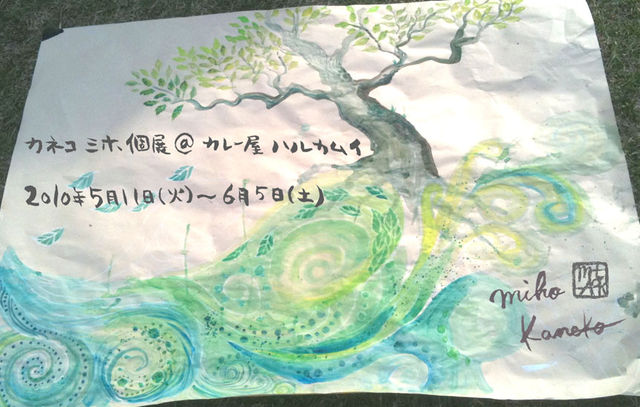 カネコ ミホ 個展 @ カレー屋 ハルカムイ
2010年5月11日(火)～6月5日(土)
miho
Kaneko